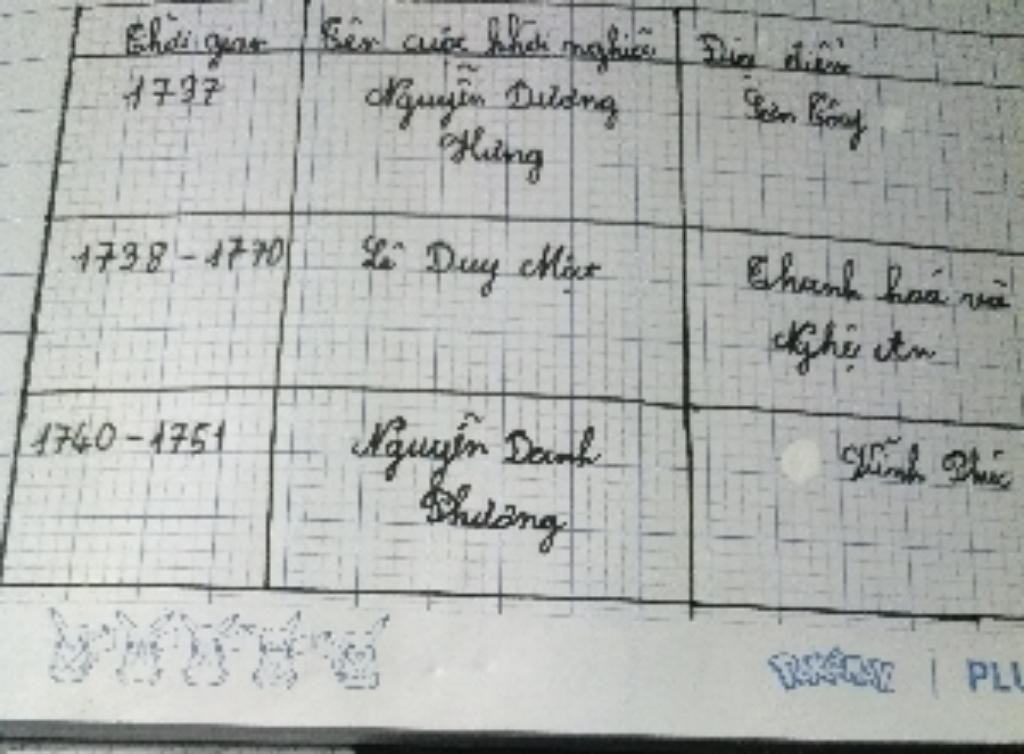 Thời gian Tên cuộc khởi nghĩa Địa điểm
1737 Nguyễn Dương Sơn Tây
Hưng
1738 - 1770 Lê Duy Mật Thanh hoá và
Nghệ An
1740 - 1751 Nguyễn Danh Vĩnh Phúc
Phương
POKÉMON | PLU